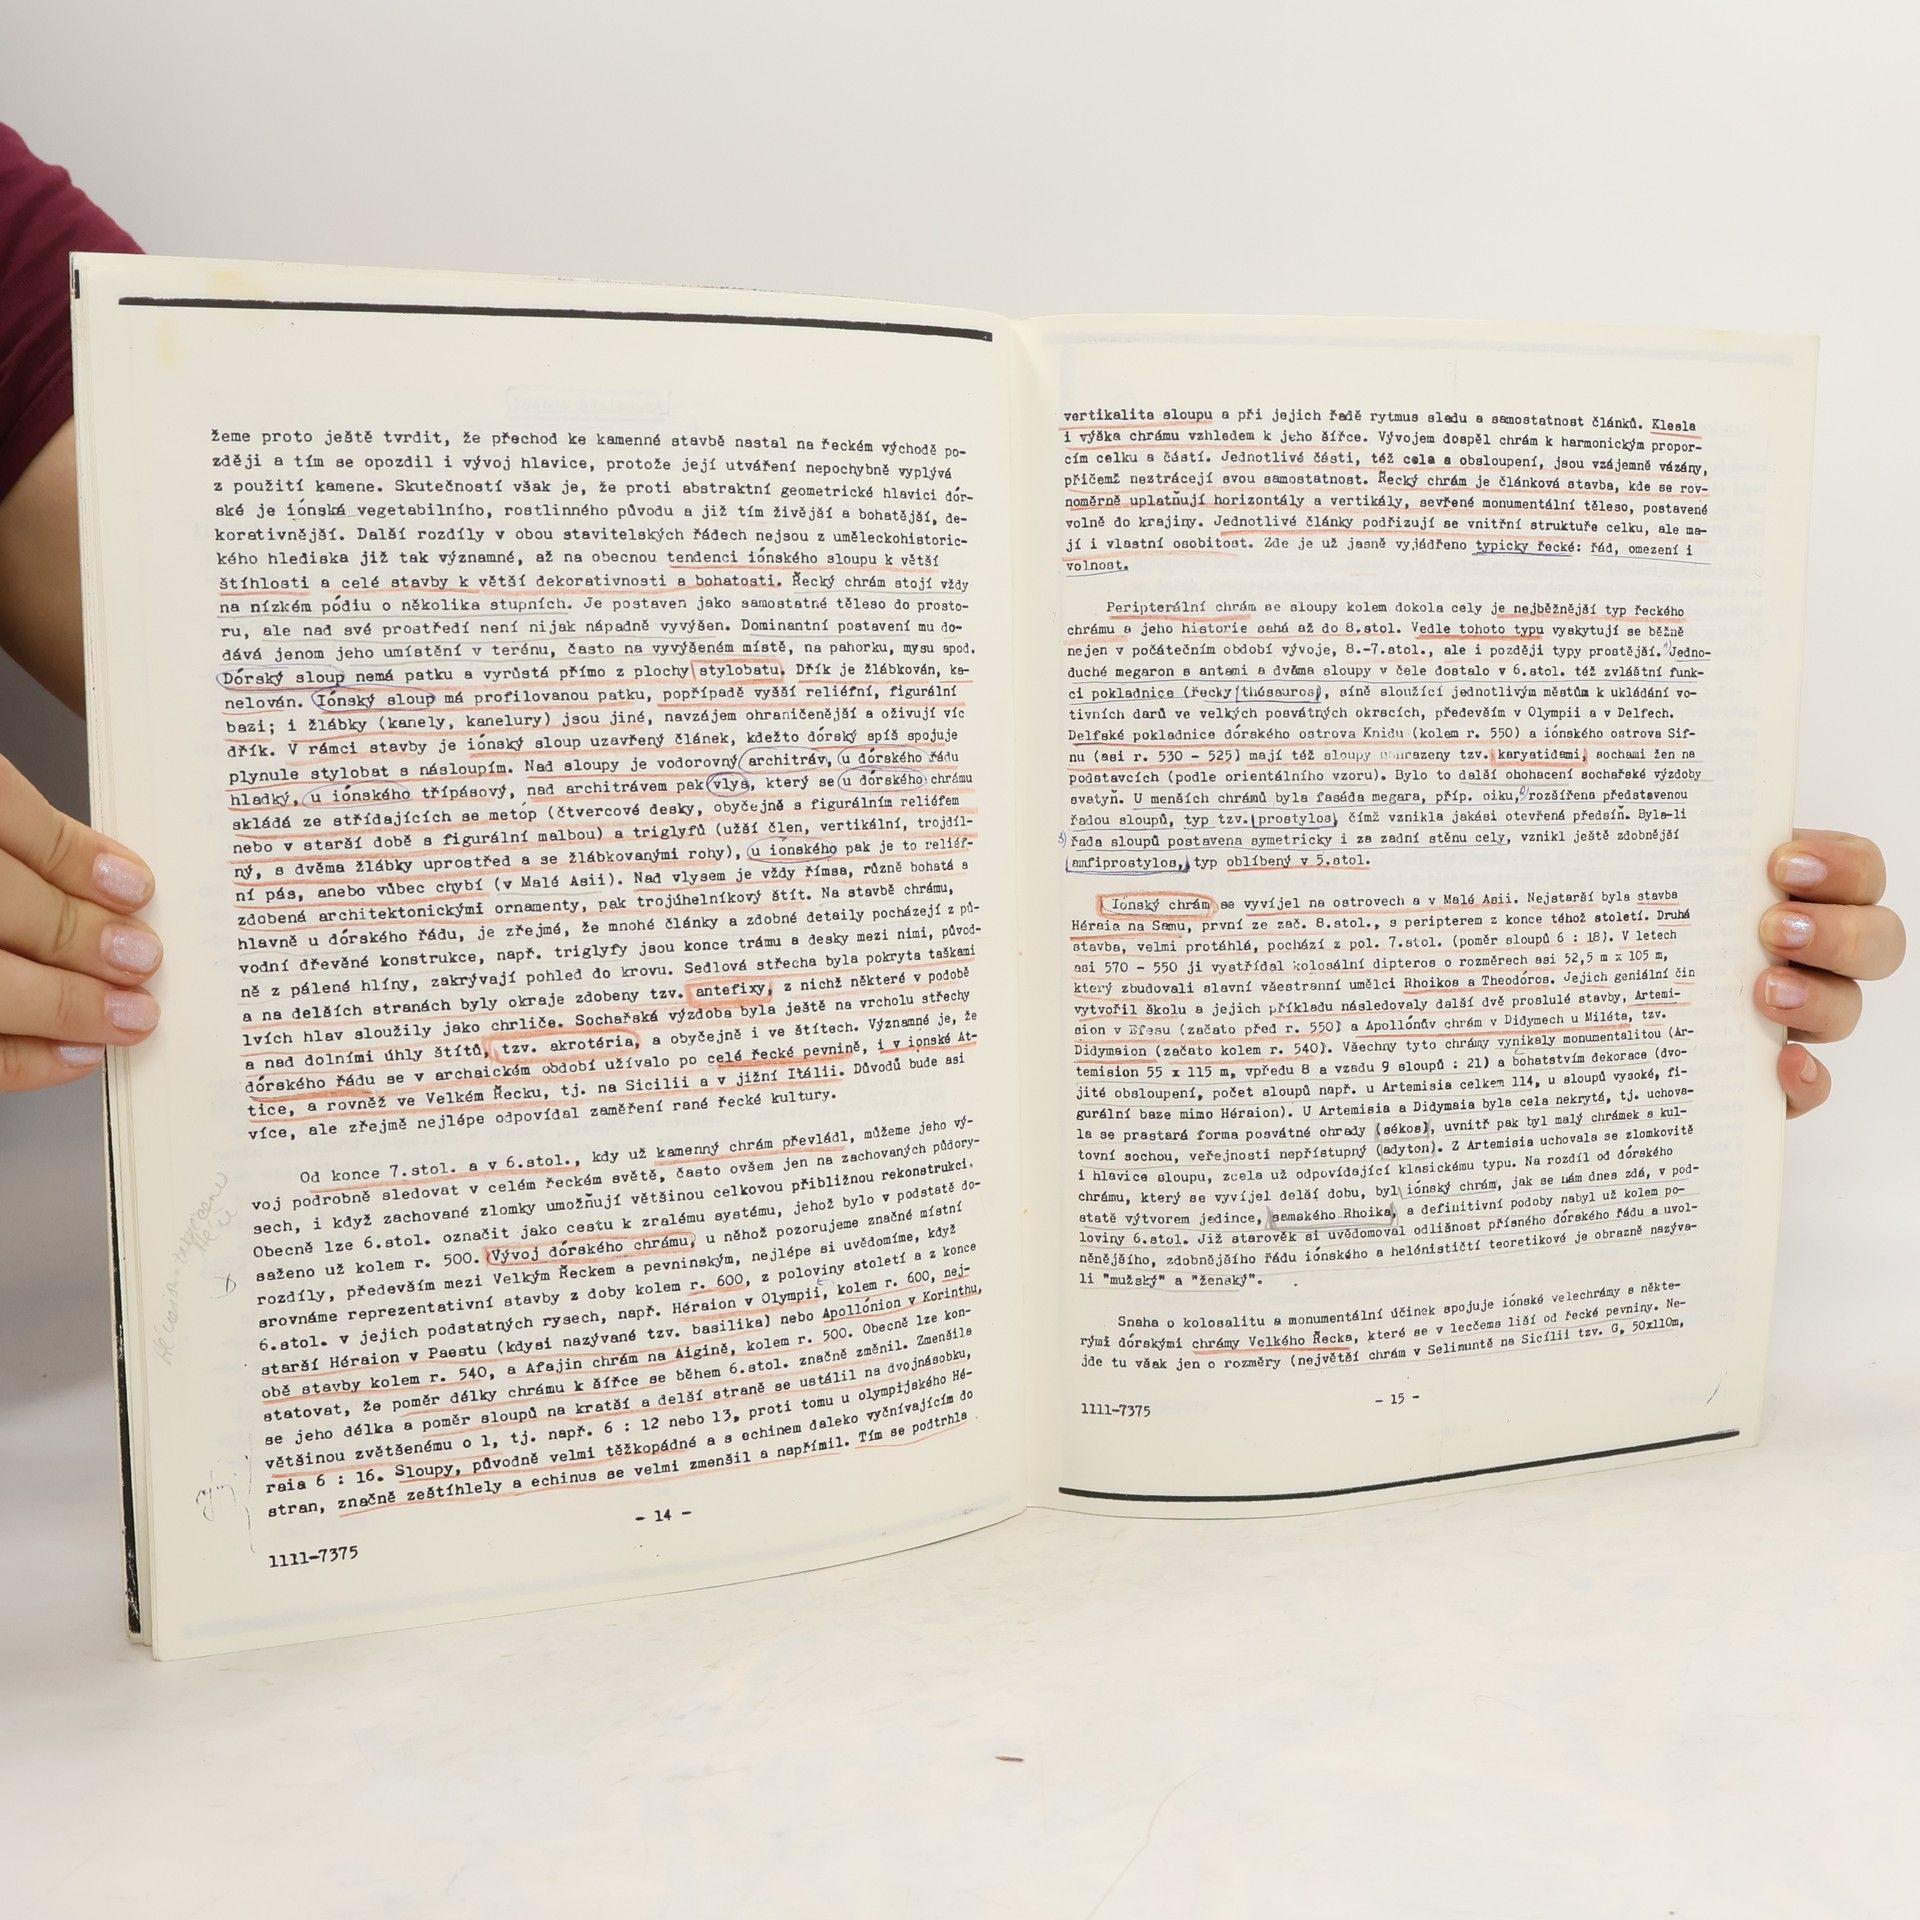 žeme proto ještě tvrdit, že přechod ke kamenné stavbě nastal na řeckém východě po-
zději a tím se opozdil i vývoj hlavice, protože její utváření nepochybně vyplývá
z použití kamene. Skutečností však je, že proti abstraktní geometrické hlavici dór-
ské je iónská vegetabilního, rostlinného původu a již tím živější a bohatější, de-
korativnější. Další rozdíly v obou stavitelských řádech nejsou z uměleckohistoric-
kého hlediska již tak významné, až na obecnou tendenci iónského sloupu k větší
štíhlosti a celé stavby k větší dekorativnosti a bohatosti. Řecký chrám stojí vždy
na nízkém pódiu o několika stupních. Je postaven jako samostatné těleso do prosto-
ru, ale nad své prostředí není nijak nápadně vyvýšen. Dominantní postavení mu do-
dává jenom jeho umístění v terénu, často na vyvýšeném místě, na pahorku, mysu apod.
Dórský sloup nemá patku a vyrůstá přímo z plochy stylobatu. Dřík je žlábkován, ka-
nelován. Iónský sloup má profilovanou patku, popřípadě vyšší reliéfní, figurální
bazi; i žlábky (kanely, kanelury) jsou jiné, navzájem ohraničenější a oživují víc
dřík. V rámci stavby je iónský sloup uzavřený článek, kdežto dórský spíš spojuje
plynule stylobat s násloupím. Nad sloupy je vodorovný architráv, u dórského řádu
hladký, u iónského třípásový, nad architrávem pak vlys, který se u dórského chrámu
skládá ze střídajících se metóp (čtvercové desky, obyčejně s figurálním reliéfem
nebo v starší době s figurální malbou) a triglyfů (užší člen, vertikální, trojdíl-
ný, s dvěma žlábky uprostřed a se žlábkovanými rohy), u ionského pak je to reliéf-
ní pás, anebo vůbec chybí (v Malé Asii). Nad vlysem je vždy římsa, různě bohatá a
zdobená architektonickými ornamenty, pak trojúhelníkový štít. Na stavbě chrámu,
hlavně u dórského řádu, je zřejmé, že mnohé články a zdobné detaily pocházejí z pů-
vodní dřevěné konstrukce, např. triglyfy jsou konce trámu a desky mezi nimi, původ-
ně z pálené hlíny, zakrývají pohled do krovu. Sedlová střecha byla pokryta taškami
a na delších stranách byly okraje zdobeny tzv. antefixy, z nichž některé v podobě
lvích hlav sloužily jako chrliče. Sochařská výzdoba byla ještě na vrcholu střechy
a nad dolními úhly štítů, tzv. akrotéria, a obyčejně i ve štítech. Významné je, že
dórského řádu se v archaickém období užívalo po celé řecké pevnině, i v ionské At-
tice, a rovněž ve Velkém Řecku, tj. na Sicilii a v jižní Itálii. Důvodů bude asi
více, ale zřejmě nejlépe odpovídal zaměření rané řecké kultury.
Od konce 7.stol. a v 6.stol., kdy už kamenný chrám převládl, můžeme jeho vý-
voj podrobně sledovat v celém řeckém světě, často ovšem jen na zachovaných půdory-
sech, i když zachované zlomky umožňují většinou celkovou přibližnou rekonstrukci.
Obecně lze 6.stol. označit jako cestu k zralému systému, jehož bylo v podstatě do-
saženo už kolem r. 500. Vývoj dórského chrámu, u něhož pozorujeme značné místní
rozdíly, především mezi Velkým Řeckem a pevninským, nejlépe si uvědomíme, když
srovnáme reprezentativní stavby z doby kolem r. 600, z poloviny století a z konce
6.stol. v jejich podstatných rysech, např. Héraion v Olympii, kolem r. 600, nej-
starší Héraion v Paestu (kdysi nazývané tzv. basilika) nebo Apollónion v Korinthu,
obě stavby kolem r. 540, a Afajin chrám na Aigině, kolem r. 500. Obecně lze kon-
statovat, že poměr délky chrámu k šířce se během 6.stol. značně změnil. Zmenšila
se jeho délka a poměr sloupů na kratší a delší straně se ustálil na dvojnásobku,
většinou zvětšenému o 1, tj. např. 6 : 12 nebo 13, proti tomu u olympijského Hé-
raia 6 : 16. Sloupy, původně velmi těžkopádné a s echinem daleko vyčnívajícím do
stran, značně zeštíhlely a echinus se velmi zmenšil a napřímil. Tím se podtrhla
- 14 -
1111-7375
vertikalita sloupu a při jejich řadě rytmus sledu a samostatnost článků. Klesla
i výška chrámu vzhledem k jeho šířce. Vývojem dospěl chrám k harmonickým propor-
cím celku a částí. Jednotlivé části, též cela a obsloupení, jsou vzájemně vázány,
přičemž neztrácejí svou samostatnost. Řecký chrám je článková stavba, kde se rov-
noměrně uplatňují horizontály a vertikály, sevřené monumentální těleso, postavené
volně do krajiny. Jednotlivé články podřizují se vnitřní struktuře celku, ale ma-
jí i vlastní osobitost. Zde je už jasně vyjádřeno typicky řecké: řád, omezení i
volnost.
Peripterální chrám se sloupy kolem dokola cely je nejběžnější typ řeckého
chrámu a jeho historie sahá až do 8.stol. Vedle tohoto typu vyskytují se běžně
nejen v počátečním období vývoje, 8.-7.stol., ale i později typy prostější. Jedno-
duché megaron s antami a dvěma sloupy v čele dostalo v 6.stol. též zvláštní funk-
ci pokladnice (řecky thésauros), síně sloužící jednotlivým městům k ukládání vo-
tivních darů ve velkých posvátných okrscích, především v Olympii a v Delfech.
Delfské pokladnice dórského ostrova Knidu (kolem r. 550) a iónského ostrova Sif-
nu (asi r. 530 - 525) mají též sloupy nahrazeny tzv. karyatidami, sochami žen na
podstavcích (podle orientálního vzoru). Bylo to další obohacení sochařské výzdoby
svatyň. U menších chrámů byla fasáda megara, příp. oiku, rozšířena představenou
řadou sloupů, typ tzv. prostylos, čímž vznikla jakási otevřená předsíň. Byla-li
řada sloupů postavena symetricky i za zadní stěnu cely, vznikl ještě zdobnější
amfiprostylos, typ oblíbený v 5.stol.
Iónský chrám se vyvíjel na ostrovech a v Malé Asii. Nejstarší byla stavba
Héraia na Samu, první ze zač. 8.stol., s peripterem z konce téhož století. Druhá
stavba, velmi protáhlá, pochází z pol. 7.stol. (poměr sloupů 6 : 18). V letech
asi 570 - 550 ji vystřídal kolosální dipteros o rozměrech asi 52,5 m x 105 m,
který zbudovali slavní všestranní umělci Rhoikos a Theodóros. Jejich geniální čin
vytvořil školu a jejich příkladu následovaly další dvě proslulé stavby, Artemi-
sion v Efesu (začato před r. 550) a Apollónův chrám v Didymech u Miléta, tzv.
Didymaion (začato kolem r. 540). Všechny tyto chrámy vynikaly monumentalitou (Ar-
temision 55 x 115 m, vpředu 8 a vzadu 9 sloupů : 21) a bohatstvím dekorace (dvo-
jité obsloupení, počet sloupů např. u Artemisia celkem 114, u sloupů vysoké, fi-
gurální baze mimo Héraion). U Artemisia a Didymaia byla cela nekrytá, tj. uchova-
la se prastará forma posvátné ohrady (sékos), uvnitř pak byl malý chrámek s kul-
tovní sochou, veřejnosti nepřístupný (adyton). Z Artemisia uchovala se zlomkovitě
i hlavice sloupu, zcela už odpovídající klasickému typu. Na rozdíl od dórského
chrámu, který se vyvíjel delší dobu, byl iónský chrám, jak se nám dnes zdá, v pod-
statě výtvorem jedince, samského Rhoika, a definitivní podoby nabyl už kolem po-
loviny 6.stol. Již starověk si uvědomoval odlišnost přísného dórského řádu a uvol-
něnějšího, zdobnějšího řádu iónského a helénističtí teoretikové je obrazně nazýva-
li "mužský" a "ženský".
Snaha o kolosalitu a monumentální účinek spojuje iónské velechrámy s někte-
rými dórskými chrámy Velkého Řecka, které se v lecčems liší od řecké pevniny. Ne-
jde tu však jen o rozměry (největší chrám v Selinuntě na Sicílii tzv. G, 50x110m,
- 15 -
1111-7375